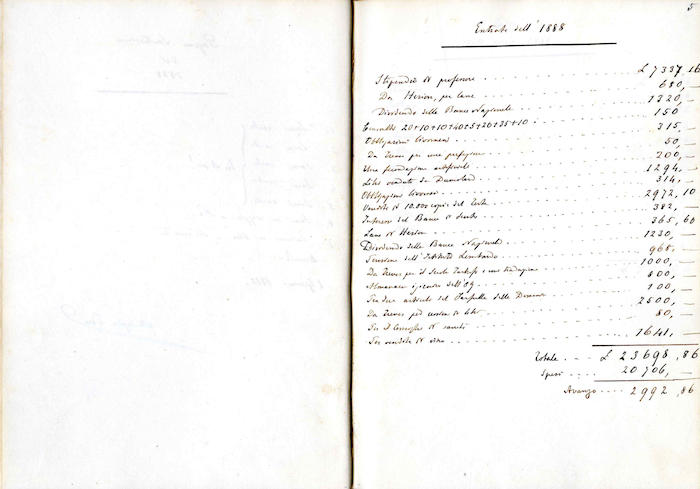 5
Entrate dell' 1888
Stipendio di professore . . . . £ 7337,16
Da Herion, per lane . . . . 680,—
Dividendo della Banca Nazionale . . . . 1320,—
Consulti 20+10+10+40+5+20+35+10 . . . . 150
Obbligazioni livornesi . . . . 315,—
Da Treves per una prefazione . . . . 50,—
Una . . . . 200,—
Libri venduti da Dumolard . . . . 1294,—
Obbligazioni livornesi . . . . 314,—
Vendita di 10.000 copie del . . . . 2972,10
Interessi del Banco . . . . 382,—
Lane di Herion . . . . 365,60
Dividendo della Banca Nazionale . . . . 1230,—
Pensione dell'Istituto Lombardo . . . . 968,—
Da Treves per il Secolo Tartufo e una traduzione . . . . 1000,—
Almanacco igienico dell'89 . . . . 800,—
Per due articoli del Fanfulla della Domenica . . . . 100,—
Da Treves per cession di libri . . . . 2500,—
Per il Consiglio di sanità . . . . 80,—
Per vendita di vino . . . . 1641,—
Totale . . . . £ 23698,86
Spesi . . . . 20706,—
Avanzo . . . . 2992,86